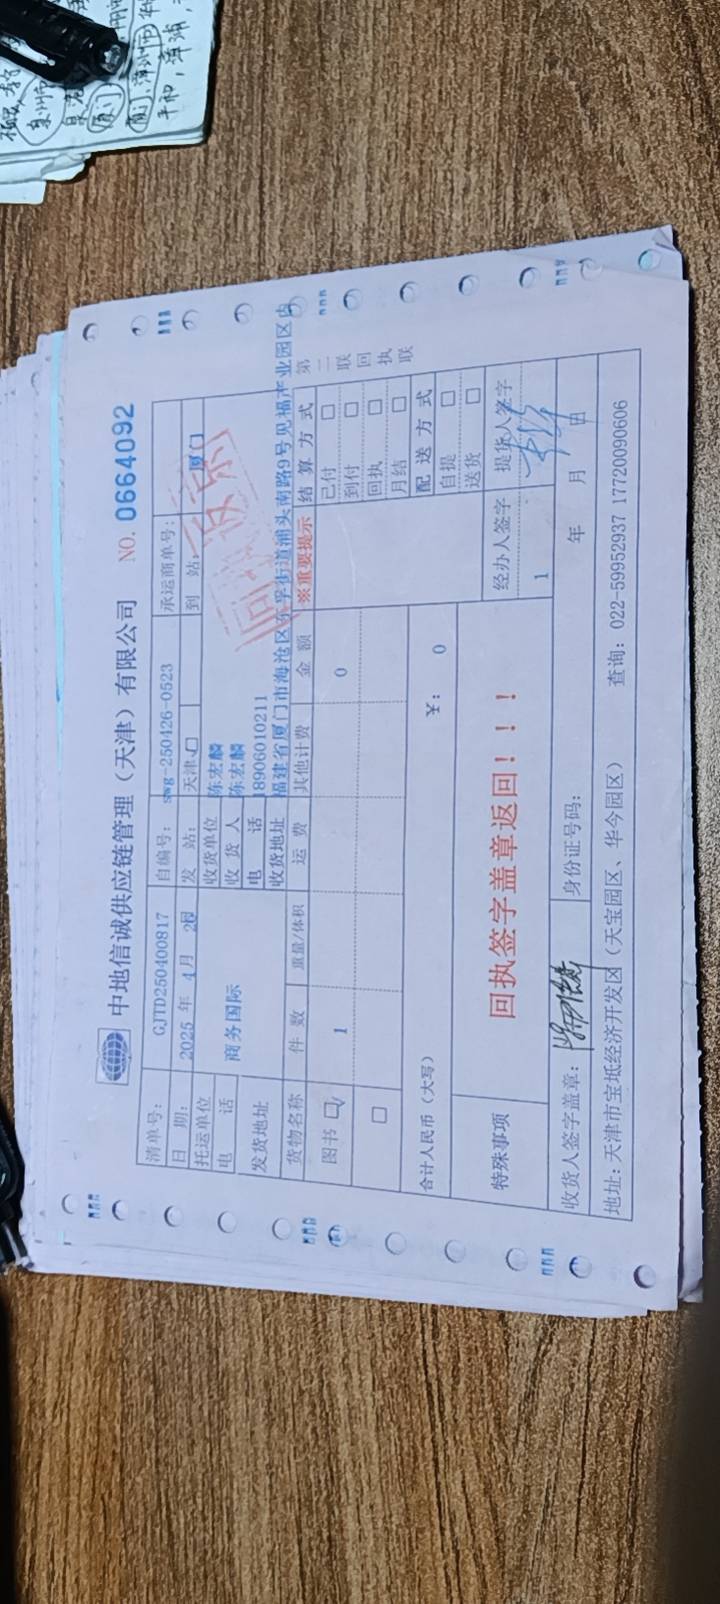 中地信诚供应链管理（天津）有限公司 NO. 0664092
清单号： GJTD250400817 自编号： swg-250426-0523 承运商单号：
日 期： 2025 年 4月 日 发 站： 天津 到 站： 厦门
托运单位 收货单位 陈宏麟
电 话 商务国际 收 货 人 陈宏麟
电 话 18906010211
发货地址 收货地址 福建省厦门市海沧区东孚街道浦头南路9号见福产业园区内
货物名称 件 数 重量/体积 运 费 其他计费 金 额 ※重要提示 结 算 方 式
图书 1 0 已付
到付
回执
月结
合计人民币（大写） ¥： 0 配 送 方 式
自提
送货
特殊事项 回执签字盖章返回！！！ 经办人签字 提货人签字
1
收货人签字盖章： 身份证号码： 年 月 日
地址：天津市宝坻经济开发区（天宝园区、华今园区） 查询：022-59952937 17720090606
第二联 回执联